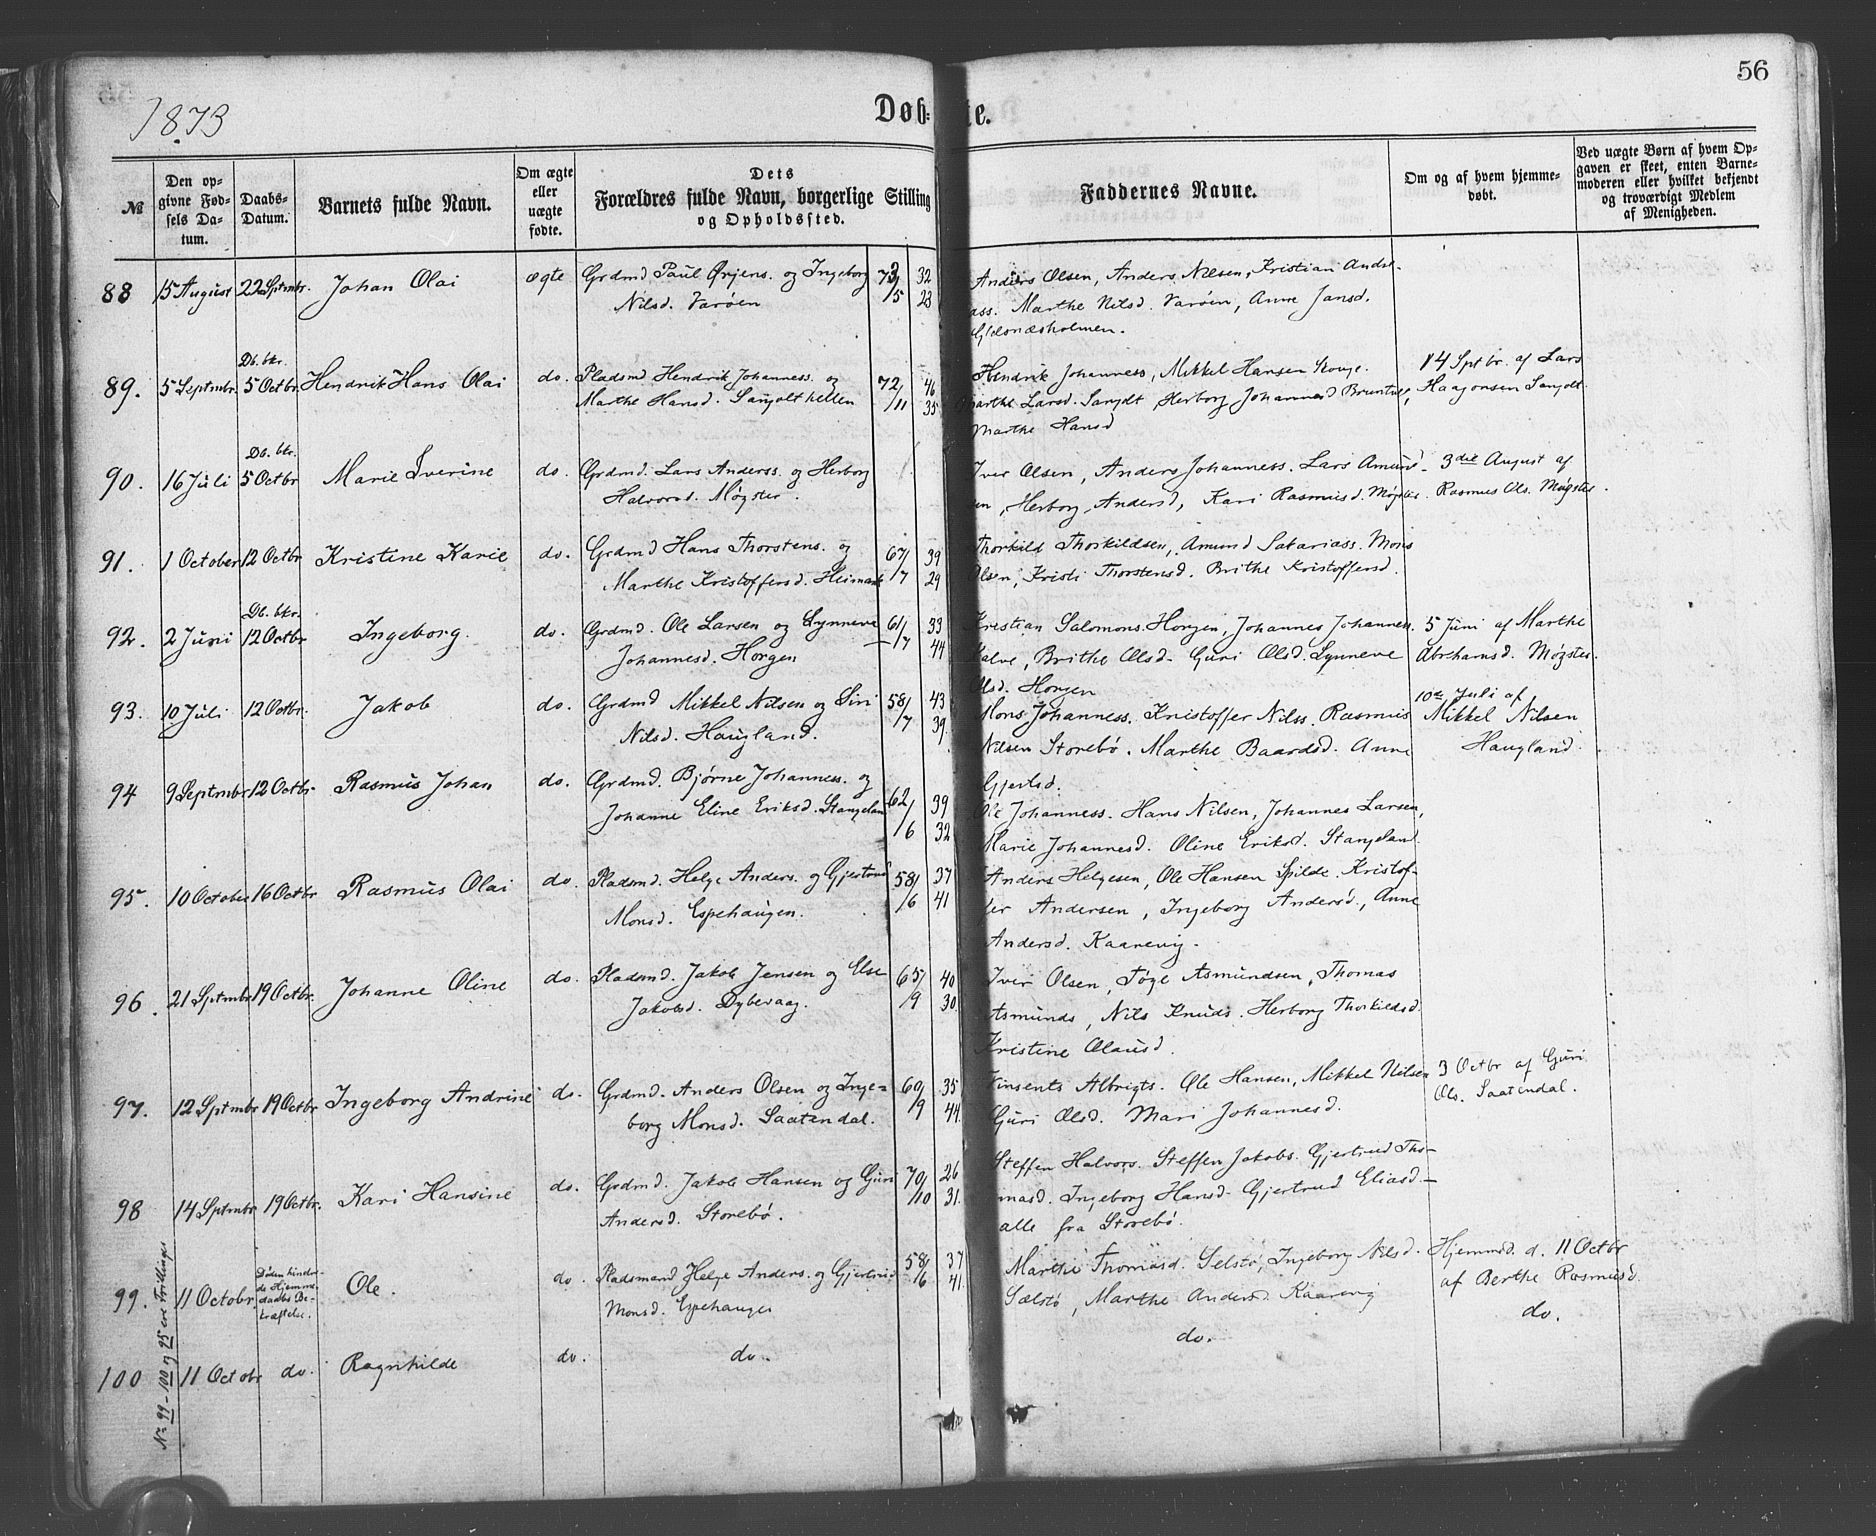 56
1873
Døb-te.
№
Den op-
givne Fød-
sels Da-
tum.
Daabs-
Datum.
Barnets fulde Navn.
Om ægte
eller
uægte
fødte.
Dets
Forældres fulde Navn, borgerlige Stilling
og Opholdssted.
Faddernes Navne.
Om og af hvem hjemme-
døbt.
Ved uægte Børn af hvem Op-
gaven er skeet, enten Barne-
moderen eller hvilket bekjendt
og troværdigt Medlem
af Menigheden.
88 15 August 22 Sptmbr. Johan Olai ægte Grdmd Paul Ørjens. og Ingeborg 73 32
Nilsd. Varøen /5 28
Anders Olsen, Anders Nilsen, Kristian Andre-
ass. Marthe Nilsd. Varøen, Anne Jansd.
Gjelsnæsholmen.
Db. bkr.
89. 5 Septmbr. 5 Octbr. Hendrik Hans Olai do. Pladsmd Hendrik Johanness. og 72/ 46
Marthe Hansd. Sangolt hellen /11 35
Hendrik Johanness, Mikkel Hansen Skouge.
Marthe Larsd. Sangdt, Herborg Johannesd Bruntvet,
Marthe Hansd
14 Sptbr. af Lars
Haagonsen Sangdt.
Db. bkr.
90. 16 Juli 5 Octbr Marie Iverine do. Grdmd. Lars Anderss. og Herborg
Halvorsd. Møgster.
Iver Olsen, Anders Johanness. Lars Amund-
sen, Herborg Andersd, Kari Rasmusd. Møgster
3die August af
Rasmus Ols. Møgster.
91. 1 October 12 Octbr Kristine Karie do. Grdmd Hans Thorstens. og 67/ 39
Marthe Kristoffersd. Heimark /7 29
Thorkild Thorkildsen, Amund Sakariass. Mons
Olsen, Kristi Thorstensd. Brithe Kristoffersd.
Db. bkr.
92. 2 Juni 12 Octbr Ingeborg. do. Grdmd. Ole Larsen og Synneve 61/ 33
Johannesd. Horgen /7 44
Kristian Salomons. Horgen, Johannes Johannes.
Kalve, Brithe Olsd. Guri Olsd. Synneve
Olsd. Horgen
5 Juni af Marthe
Abrhamsd. Møgster.
93. 10 Juli 12 Octbr. Jakob do. Grdmd Mikkel Nilsen og Siri 58/ 43
Nilsd. Haugland. /7 39
Mons Johanness. Kristoffer Nilss. Rasmus
Nilsen Storebø. Marthe Baardsd. Anne
Gjertsd.
10de Juli af
Mikkel Nilsen
Haugland.
94 9 Septmbr 12 Octbr. Rasmus Johan do. Grdmd. Bjørne Johanness. og
Johanne Eline Eriksd. Stangeland 62/ 39
/6 32
Ole Johanness. Hans Nilsen, Johannes Larsen,
Marie Johannesd. Oline Eriksd. Stangeland
95. 10 October 16 Octbr Rasmus Olai do. Pladsmd. Helge Anders. og Gjertrud 58/ 37
Monsd. Espehaugen. /6 41
Anders Helgesen, Ole Hansen Spilde. Kristof-
fer Andersen, Ingeborg Andersd., Anne
Andersd. Kaarevig.
96. 21 Sptmbr 19 Octbr. Johanne Oline do. Pladsmd. Jakob Jensen og Else 65/ 40
Jakobsd. Dybevaag. /9 30
Iver Olsen, Tøge Asmundsen, Thomas
Asmunds, Nils Knuds. Herborg Thorkildsd.
Kristine Olausd.
97. 12 Sptmbr 19 Octbr Ingeborg Andrine do. Grdmd. Anders Olsen og Inge- 60/ 35
borg Monsd. Saatendal. /9 44
Vinsents Albrigts. Ole Hansen, Mikkel Nilsen
Guri Olsd. Mari Johannesd.
3 Octbr af Guri
Ols. Saatendal.
98 14 Sptmbr 19 Octbr. Kari Hansine do. Grdmd. Jakob Hansen og Guri 70/ 26
Andersd. Storebø. /10 31.
Steffen Halvors. Steffen Jakobs. Gjertrud Tho-
masd. Ingeborg Hansd. Gjertrud Eliasd.
alle fra Storebø.
99. 11 Octobr Døden hindre-
de Hjemme-
daabs Be-
kræftelse.
Ole. do. Pladsmand Helge Anders. og Gjertrud 58/ 37
Monsd. Espehaugen /6 41.
Marthe Thomasd. Selstø, Ingeborg Nilsd.
Sælstø, Marthe Andersd. Kaarevig
Hjemmd. d. 11 Octbr
af Berthe Rasmusd.
100 11 Octobr do. Ragnhilde do. do. do. do.
No 99 - 100 og 95 ere Trillinger